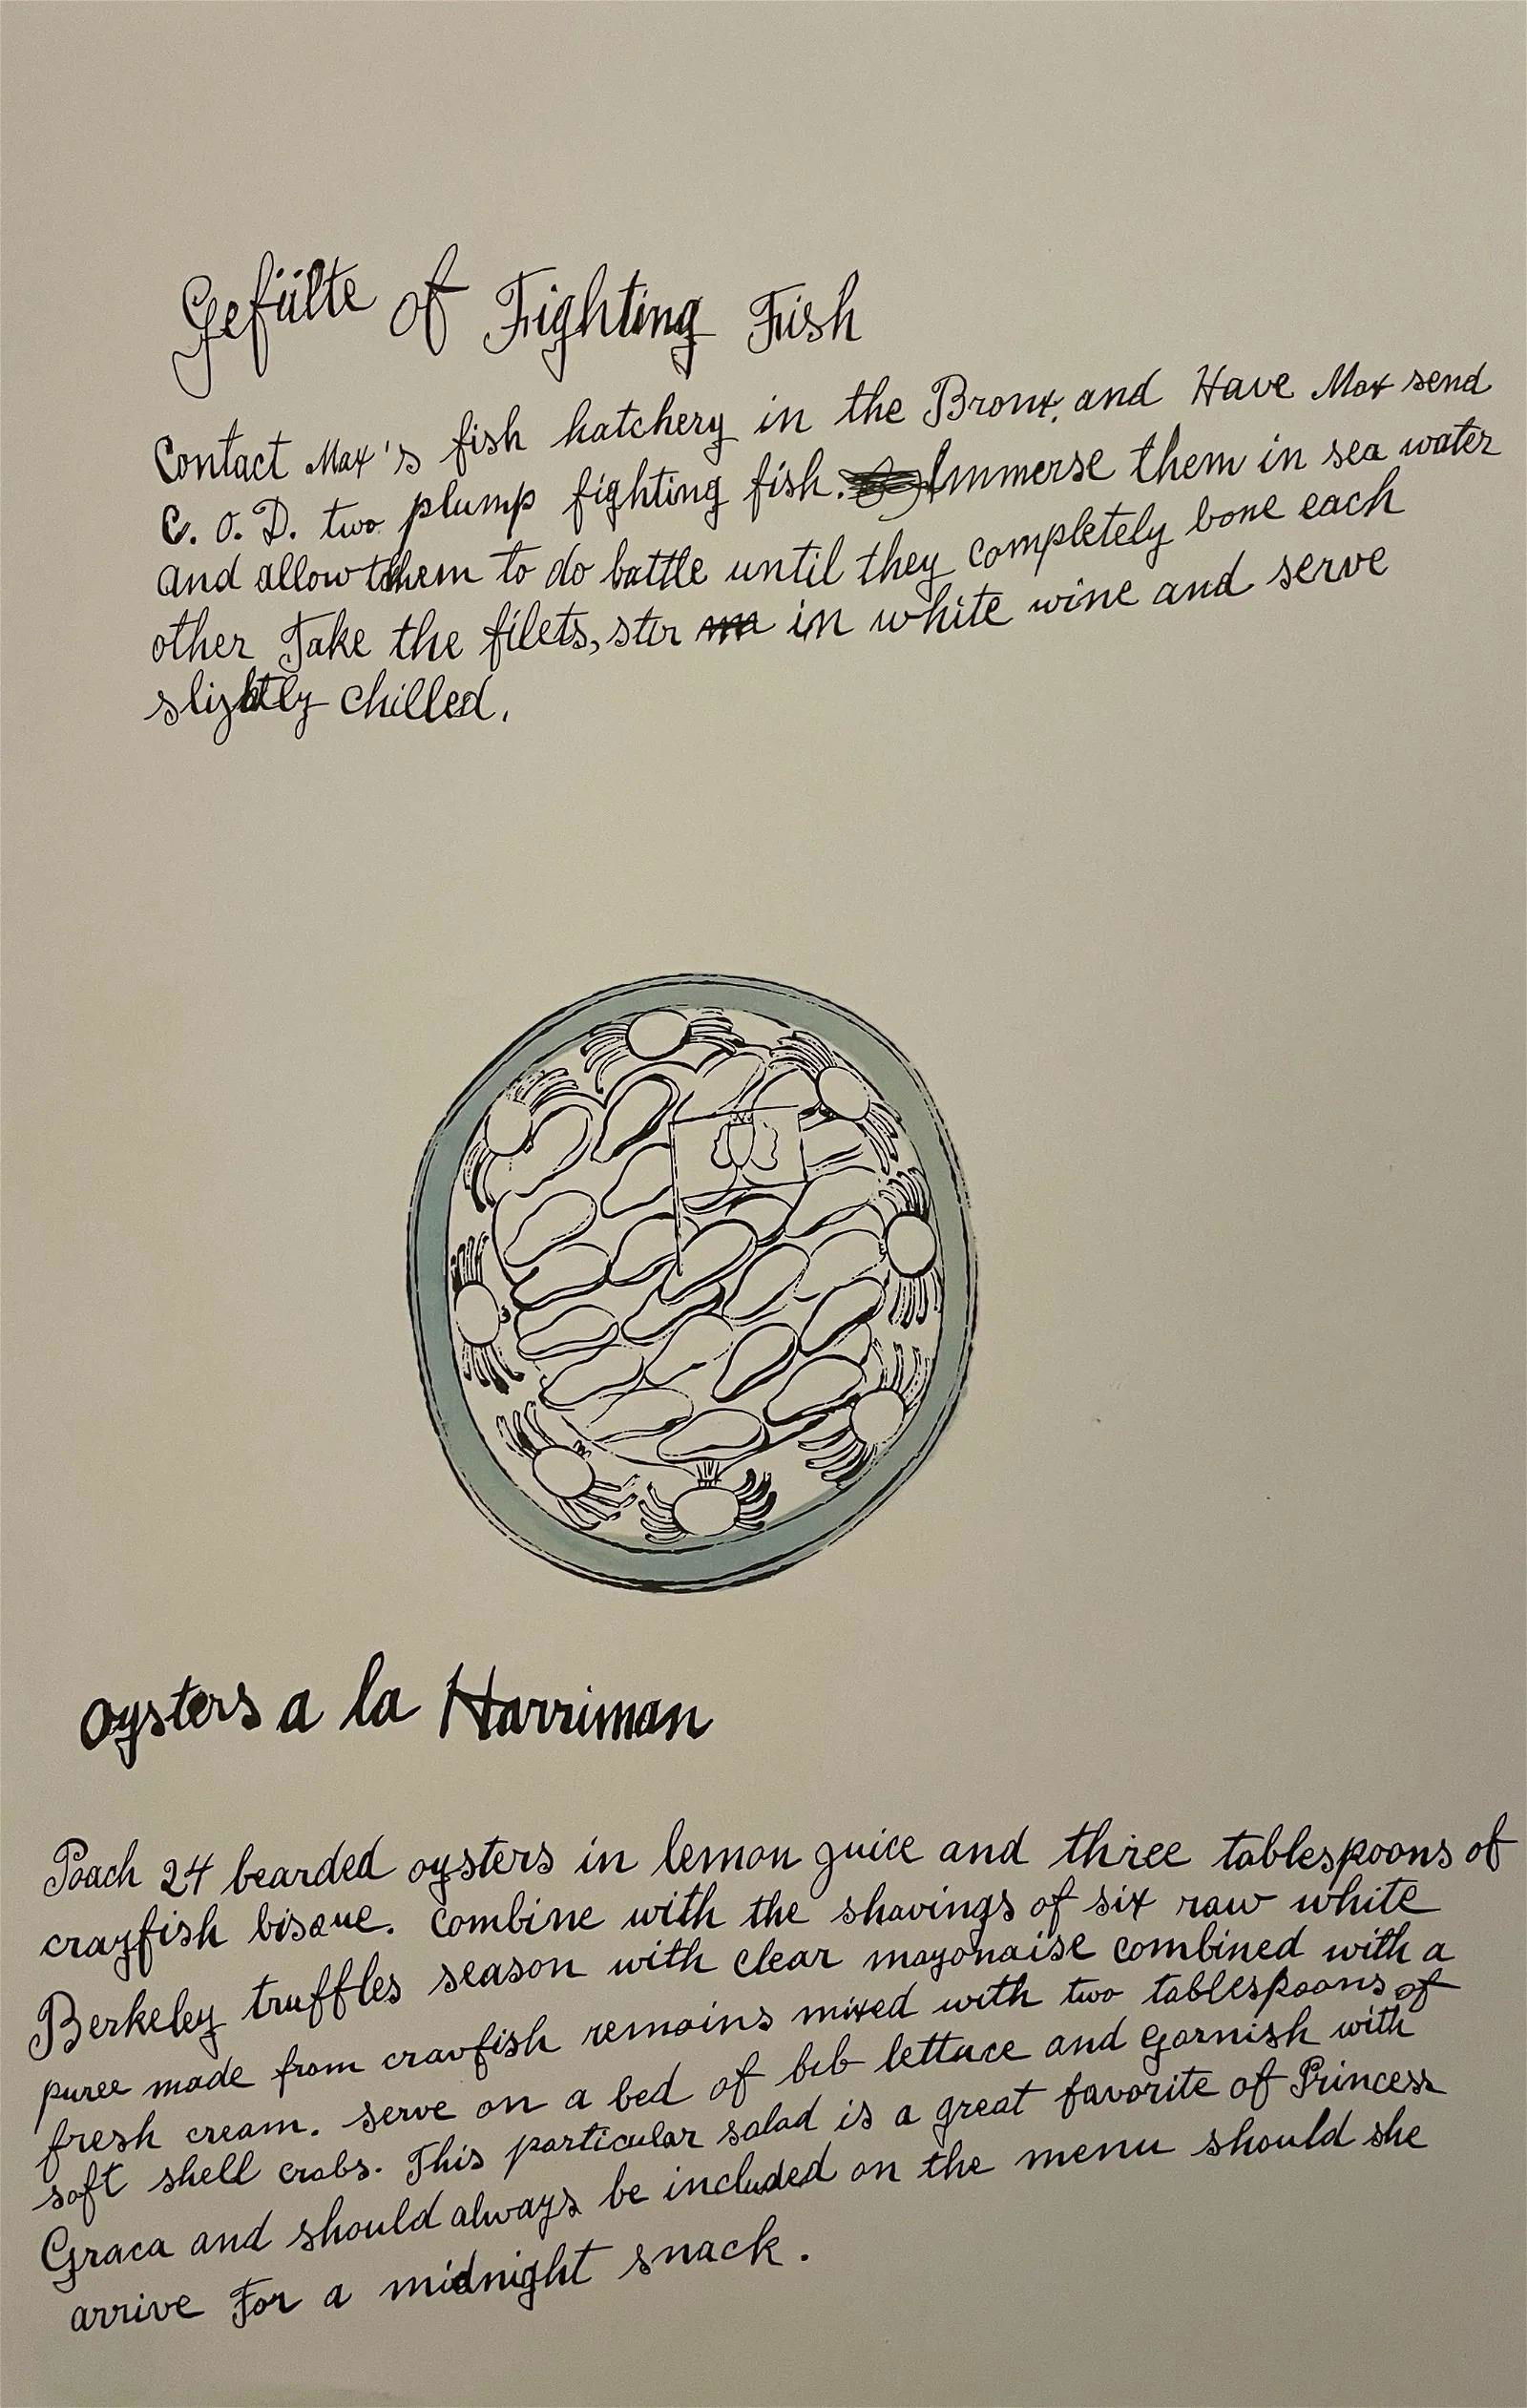 Gefülte of Fighting Fish
Contact Max's fish hatchery in the Bronx, and Have Max send
C. O. D. two plump fighting fish. Immerse them in sea water
and allow them to do battle until they completely bone each
other Take the filets, stir in white wine and serve
slightly chilled.
oysters a la Harriman
Poach 24 bearded oysters in lemon juice and three tablespoons of
crayfish bisque. Combine with the shavings of six raw white
Berkeley truffles season with clear mayonaise combined with a
puree made from crayfish remains mixed with two tablespoons of
fresh cream. serve on a bed of bib lettuce and garnish with
soft shell crabs. This particular salad is a great favorite of Princess
Graca and should always be included on the menu should she
arrive For a midnight snack.